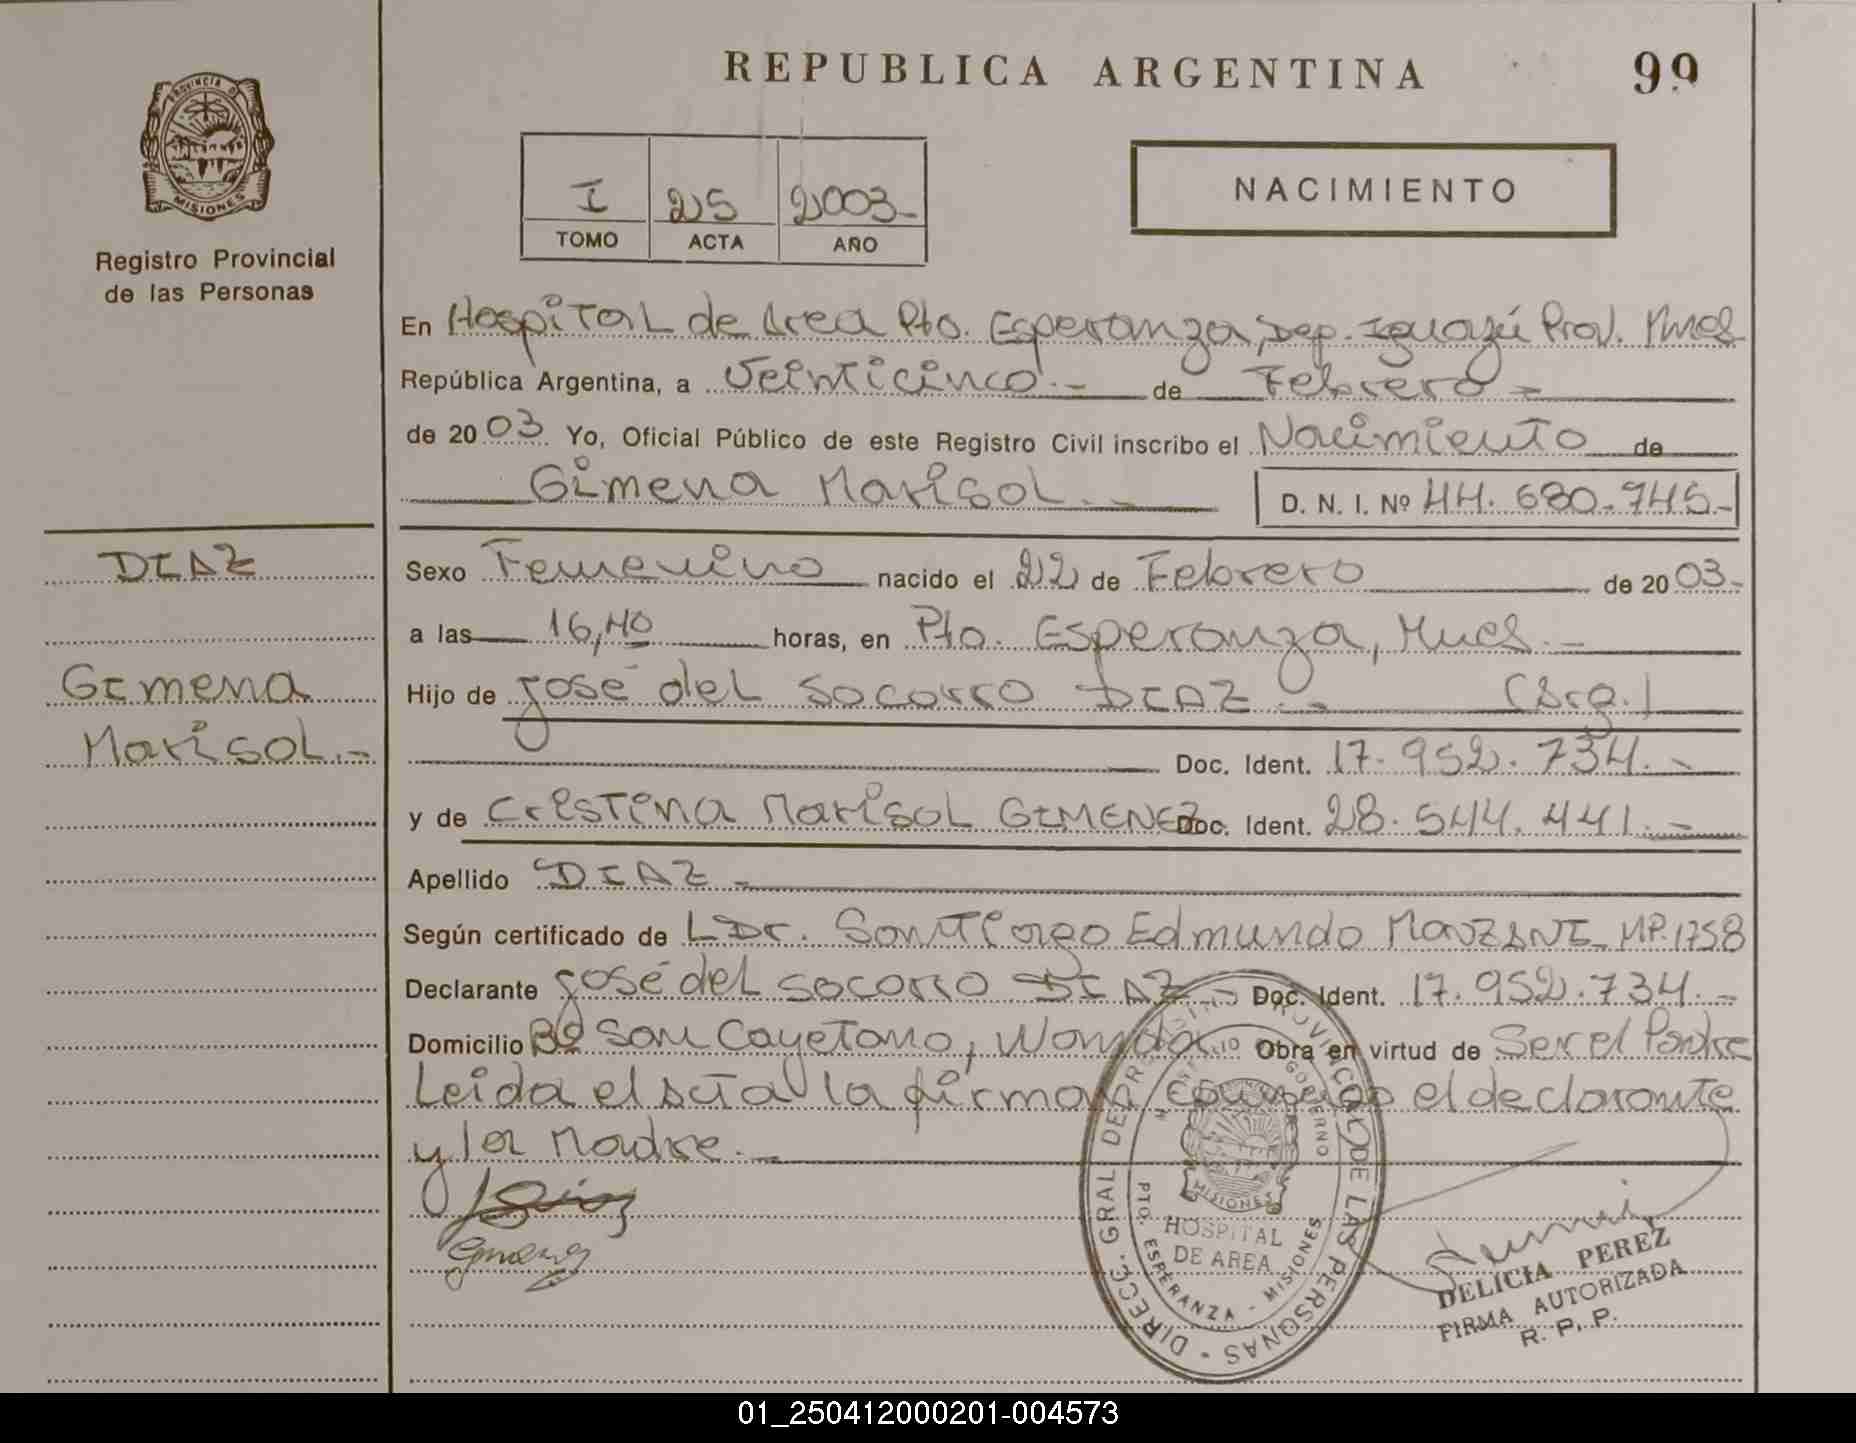 REPUBLICA ARGENTINA
99
PROVINCIA DE
MISIONES
Registro Provincial
de las Personas
I 25 2003-
TOMO ACTA AÑO
NACIMIENTO
En Hospital de Area Pto. Esperanza, Dep. Iguazú Prov. Mnes
República Argentina, a Veinticinco.- de Febrero -
de 2003 Yo, Oficial Público de este Registro Civil inscribo el Nacimiento de
Gimena Marisol.- D. N. I. Nº 44.680.745.-
DIAZ
Gimena
Marisol.-
Sexo Femenino nacido el 22 de Febrero de 2003.-
a las 16,40 horas, en Pto. Esperanza, Mnes.-
Hijo de José del Socorro DIAZ.- (Arg.)
Doc. Ident. 17.952.734.-
y de Cristina Marisol GIMENEZ Doc. Ident. 28.544.441.-
Apellido DIAZ -
Según certificado de Dr. Santiago Edmundo MP.1758
Declarante José del Socorro DIAZ.- Doc. Ident. 17.952.734.-
Domicilio Bº San Cayetano, Wanda Obra en virtud de Ser el Padre
Leida el Acta la firman el declarante
y la Madre.-
Gimenez
DIRECC. GRAL DE REGISTRO PROVINCIAL DE LAS PERSONAS
MINISTERIO DE GOBIERNO
MISIONES
HOSPITAL
DE AREA
PTO. ESPERANZA - MISIONES
DELICIA PEREZ
FIRMA AUTORIZADA
R. P. P.
01_250412000201-004573